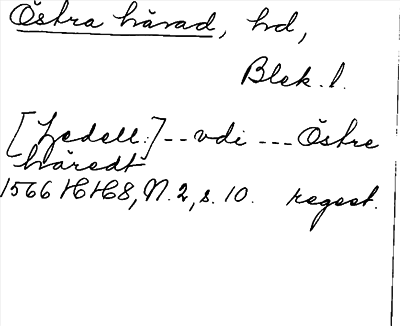 Östra härad, hd,
Blek. l.
[Ledell:] -- vdi --- Östre
häredt
1566 HH8, N. 2, s. 10. regest.